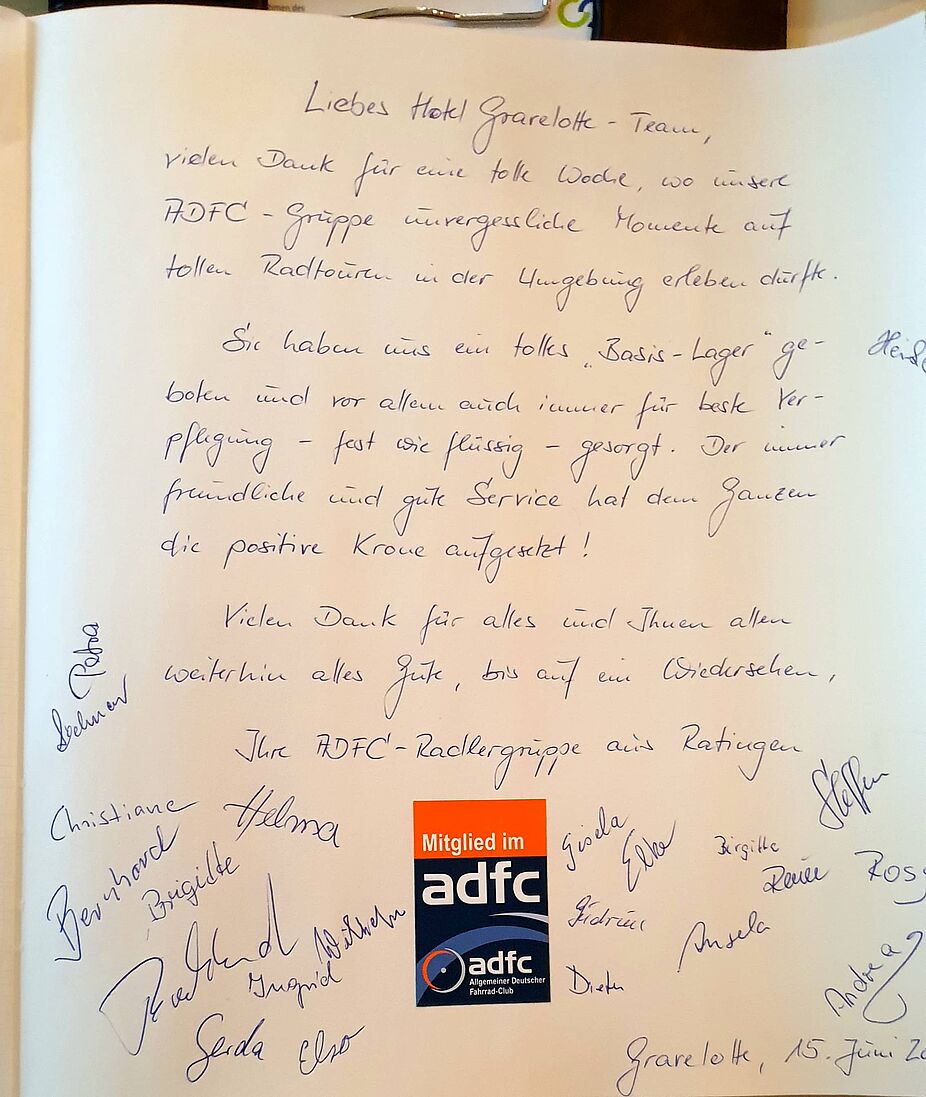 Liebes Hotel Gravelotte-Team,
vielen Dank für eine tolle Woche, wo unsere
ADFC-Gruppe unvergessliche Momente auf
tollen Radtouren in der Umgebung erleben durfte.
Sie haben uns ein tolles „Basis-Lager" ge-
boten und vor allem auch immer für beste Ver-
pflegung - fest wie flüssig - gesorgt. Der immer
freundliche und gute Service hat dem Ganzen
die positive Krone aufgesetzt!
Vielen Dank für alles und Ihnen allen
weiterhin alles Gute, bis auf ein Wiedersehen,
Ihre ADFC-Radlergruppe aus Ratingen
Petra
Christiane
Helma
Bernhard
Brigitte
Wilhelm
Ingrid
Gerda
Else
Mitglied im
adfc
adfc
Allgemeiner Deutscher
Fahrrad-Club
Gisela
Elke
Birgitte
Steffen
Gudrun
Angela
Dieter
Andrea
Gravelotte, 15. Juni